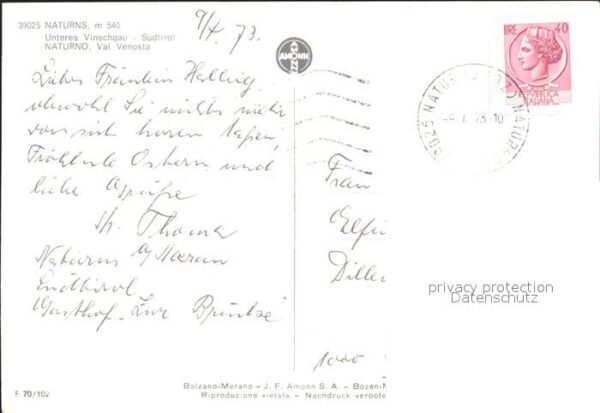 39025 NATURNS, m 540
Unteres Vinschgau - Südtirol
NATURNO, Val Venosta
9/4. 73.
AMONN
LIRE 40
REPUBBLICA
ITALIANA
39025 NATURNS
10
Liebes Fräulein Hellwig
obwohl Sie nichts mehr
von sich hören lassen,
Fröhliche Ostern und
liebe Grüße
Ihr Thoma
Naturns b/ Meran
Südtirol
Gasthof "Zur Brücke"
Frau
Elfri
Diller
1000
privacy protection
Datenschutz
F 70/102
Bolzano-Merano - J. F. Amonn S. A. - Bozen-M
Riproduzione vietata - Nachdruck verbote